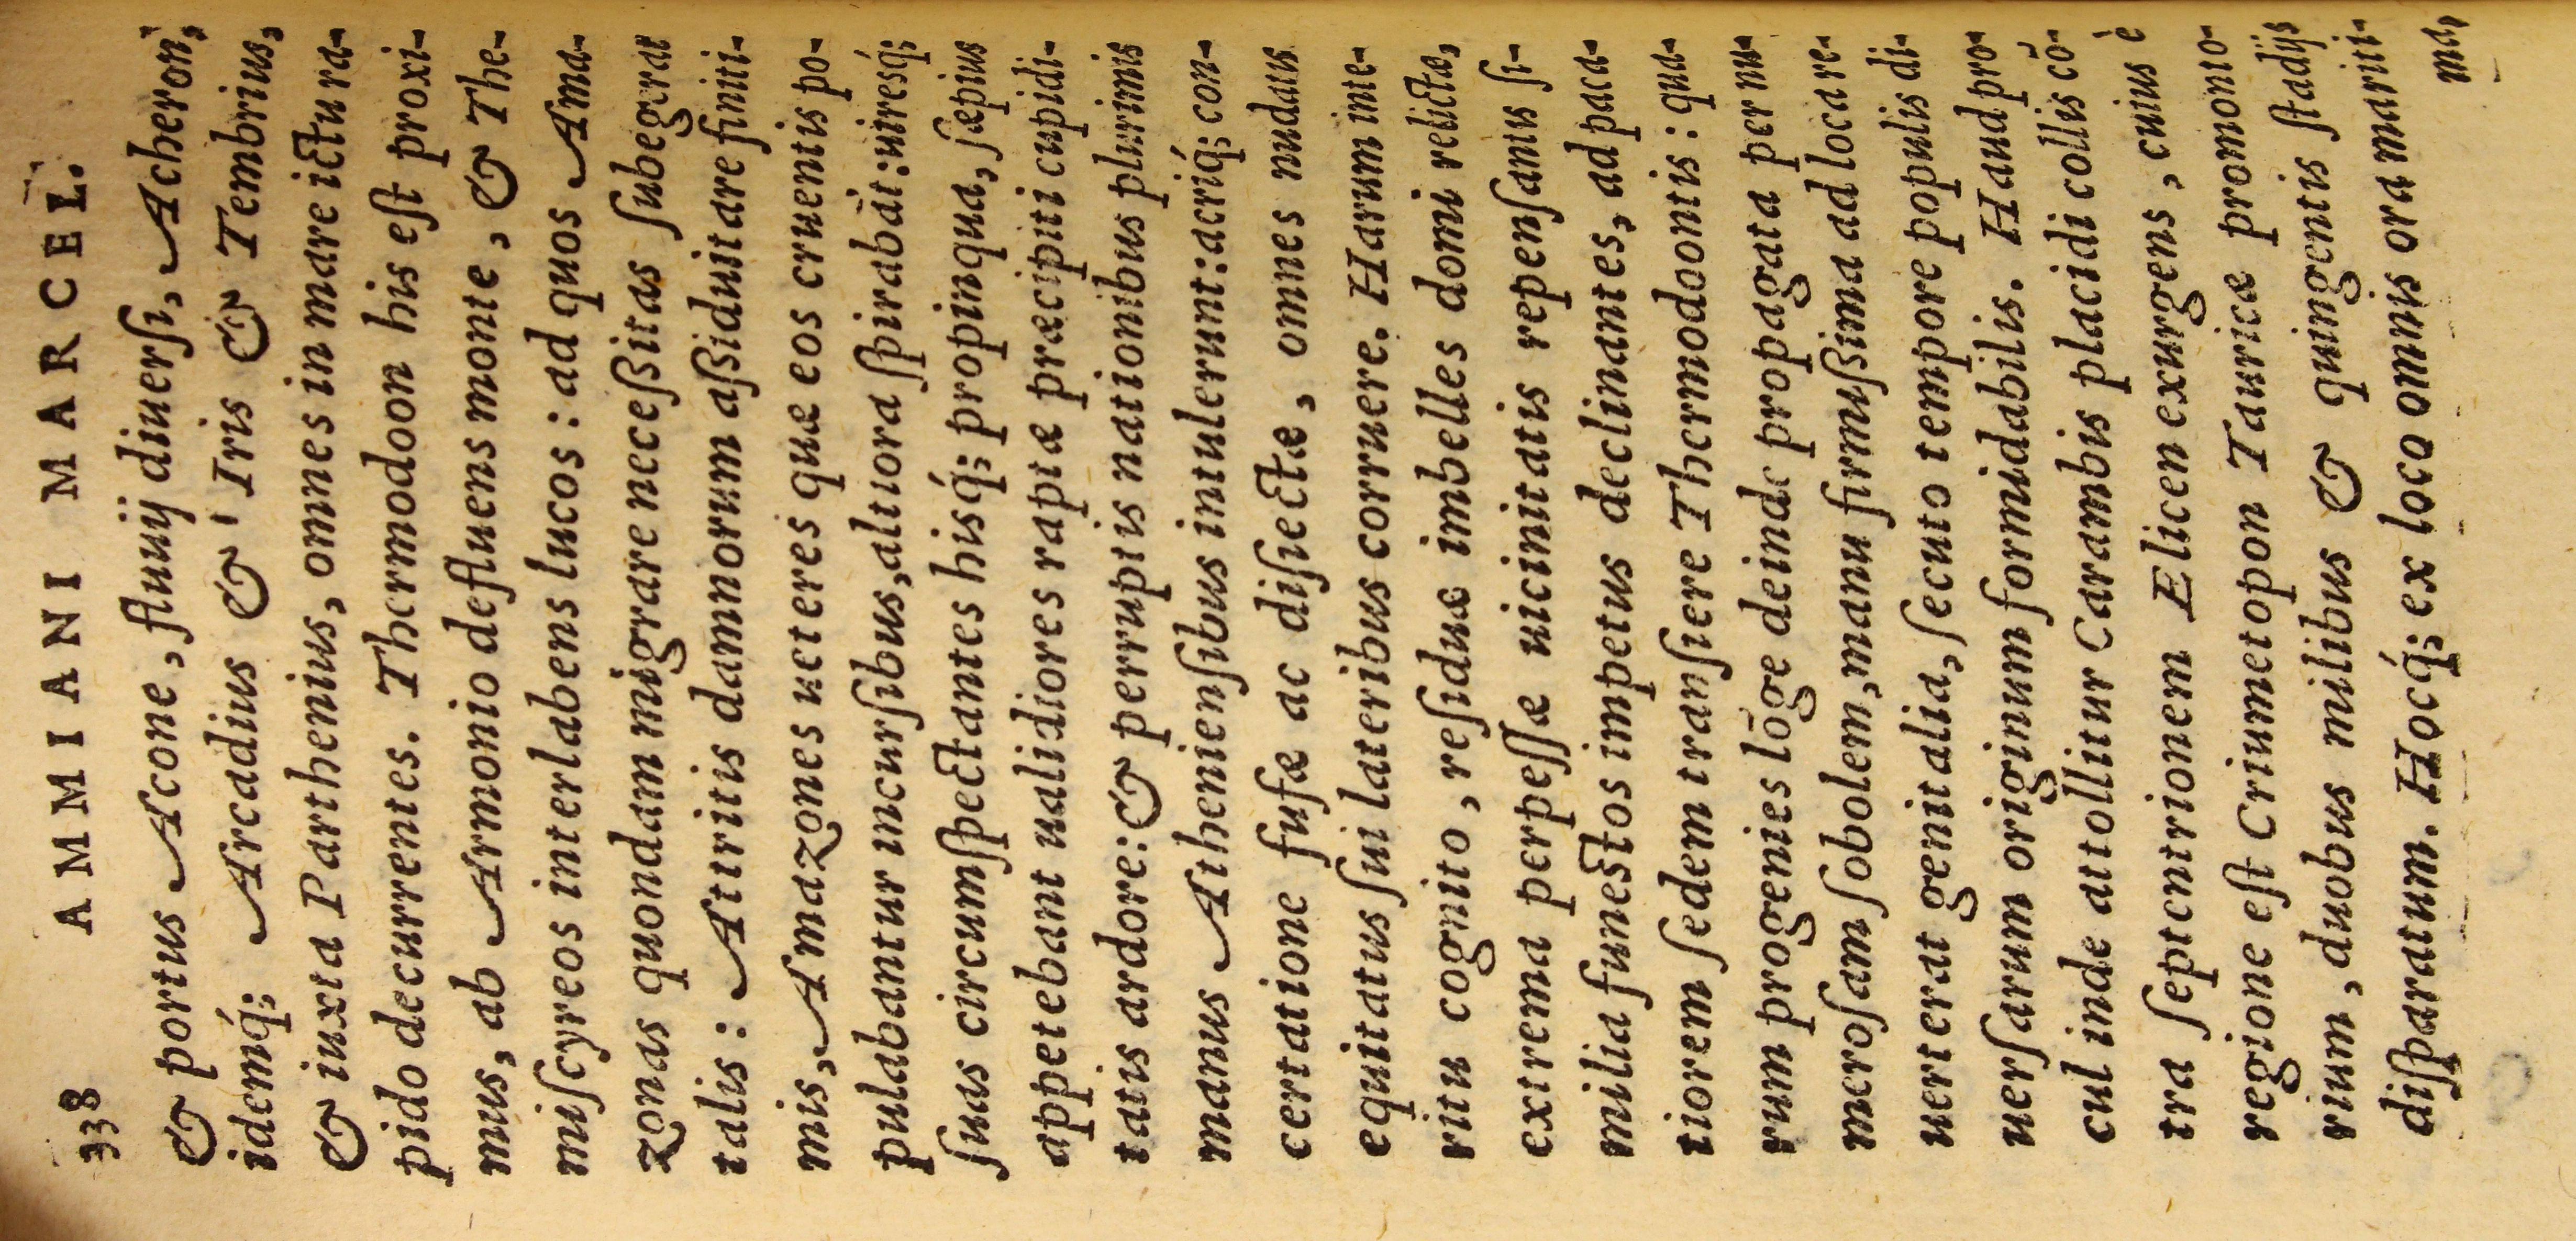 338 AMMIANI MARCEL.
& portus Acone, fluuij diuerſi, Acheron,
idemq́; Arcadius & Iris & Tembrius,
& iuxta Parthenius, omnes in mare ictu ra-
pido decurrentes. Thermodoon his eſt proxi-
mus, ab Armonio defluens monte, & The-
miſcyreos interlabens lucos: ad quos Ama-
zonas quondam migrare neceßitas ſubegerat
talis: Attritis damnorum aßiduitare finiti-
mis, Amazones ueteres quæ eos cruentis po-
pulabantur incurſibus, altiora ſpirabāt: uiresq́;
ſuas circumſpectantes hisq́; propinqua, ſæpius
appetebant ualidiores raptæ præcipiti cupidi-
tatis ardore: & perruptis nationibus plurimis
manus Athenienſibus intulerunt: acriq́; con-
certatione fuſæ ac diſiectæ, omnes nudaus
equitatus ſui lateribus corruere. Harum inte-
ritu cognito, reſiduæ imbelles domi relictæ,
extrema perpeſſæ uicinitatis repenſantis ſi-
milia funestos impetus declinantes, ad paca-
tiorem ſedem tranſiere Thermodoontis: qua-
rum progenies lōge deinde propagata per nu-
meroſam ſobolem, manu firmißima ad loca re-
uerterat genitalia, ſecuto tempore populis di-
uerſarum originum formidabilis. Haud pro-
cul inde attollitur Carambis placidi collis cō-
tra ſeptentrionem Ælicen exurgens, cuius è
regione eſt Criumetopon Tauricæ promonto-
rium, duobus milibus & quingentis ſtadijs
diſparatum. Hocq́; ex loco omnis ora mariti-
ma,